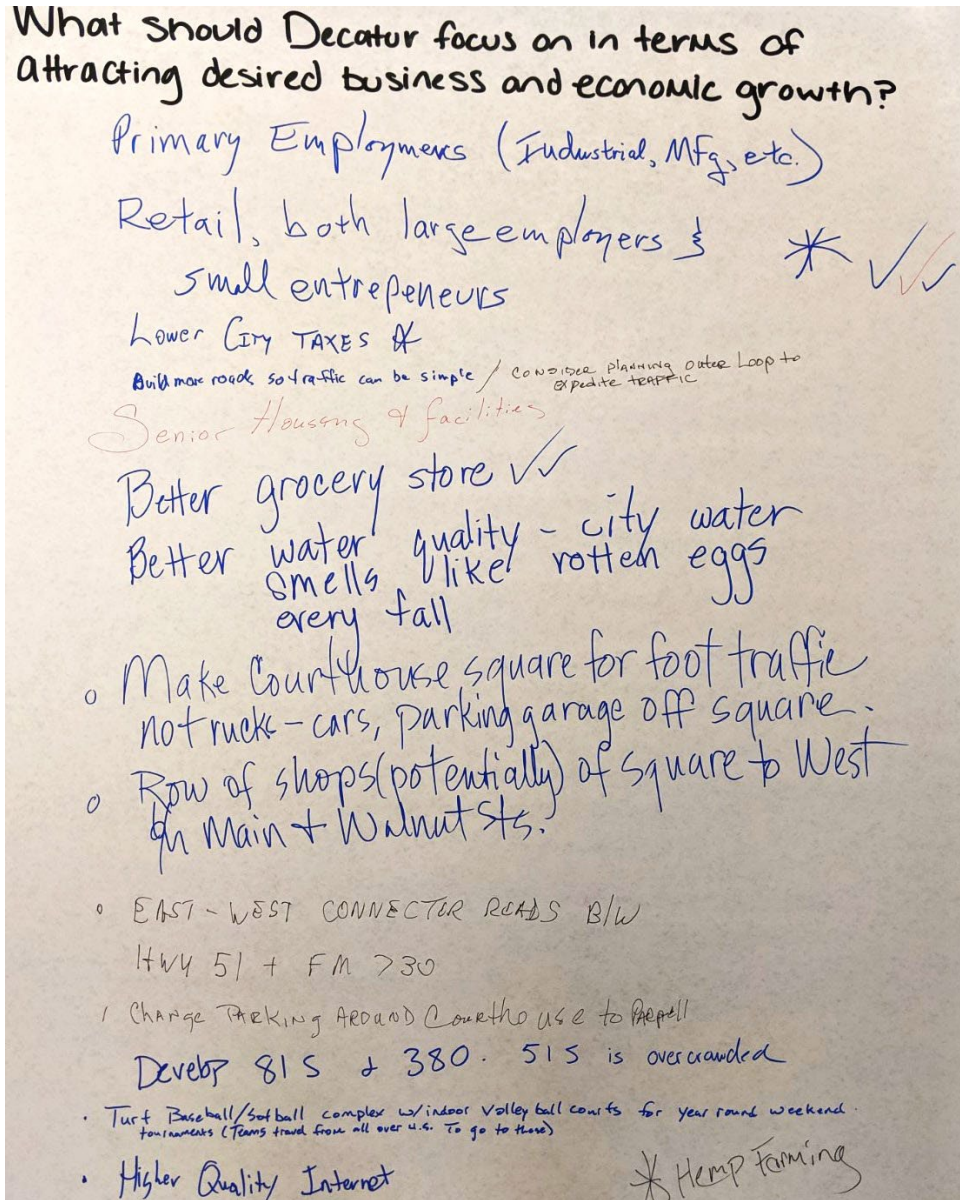 What should Decatur focus on in terms of
attracting desired business and economic growth?
Primary Employmers (Industrial, Mfg, etc.)
Retail, both large employers &
small entrepeneurs
Lower City TAXES *
Build more roads so traffic can be simple / CONSIDER PLANNING outer Loop to
expedite TRAFFIC
Senior Housing & facilities
Better grocery store ✓✓
Better water quality - city water
smells like rotten eggs
every fall
o Make Courthouse square for foot traffic
not trucks - cars, parking garage off square.
o Row of shops (potentially) of square to West
on Main + Walnut Sts.
o EAST-WEST CONNECTOR ROADS B/W
HWY 51 + FM 730
Change PARKING AROUND Courthouse to
Develop 81 S & 380. 51 S is overcrowded
· Turf Baseball/Softball complex w/indoor Valley ball courts for year round weekend
tournaments (Teams travel from all over U.S. To go to these)
· Higher Quality Internet
* Hemp Farming